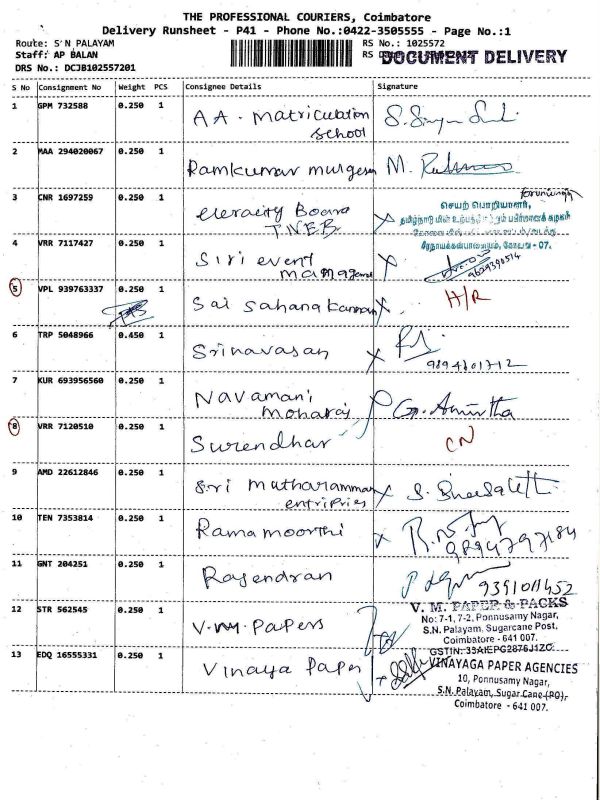 THE PROFESSIONAL COURIERS, Coimbatore
Delivery Runsheet - P41 - Phone No.:0422-3505555 - Page No.:1
Route: S'N PALAYAM
Staff: AP BALAN
DRS No.: DCJB102557201
RS No.: 1025572
RS
DOCUMENT DELIVERY
S No Consignment No Weight PCS Consignee Details Signature
1 GPM 732588 0.250 1 AA. Matriculation
School
2 MAA 294020067 0.250 1 Ramkumar murgesan M.
3 CNR 1697259 0.250 1 Board
T.N.E.B
செயற் பொறியாளர்,
- 07.
4 VRR 7117427 0.250 1 Siri event
9629390514
5 VPL 939763337 0.250 1 Sai Sahana Kannan H/R
6 TRP 5048966 0.450 1 Srinavasan
9894801712
7 KUR 693956560 0.250 1 Navamani
Moharaj G. Amirtha
8 VRR 7120510 0.250 1 Surendhar CN
9 AMD 22612846 0.250 1 Sri Mutharamman
entripries S.
10 TEN 7353814 0.250 1 Ramamoorthi
9894797184
11 GNT 204251 0.250 1 Rajendran 9391011452
12 STR 562545 0.250 1 V.M. Papers
V. M. PAPER & PACKS
No: 7-1, 7-2, Ponnusamy Nagar,
S.N. Palayam, Sugarcane Post,
Coimbatore - 641 007.
GSTIN: 33AIEPG2876J1ZC
13 EDQ 16555331 0.250 1 Vinaya Paper
VINAYAGA PAPER AGENCIES
10, Ponnusamy Nagar,
S.N. Palayam, Sugar Cane (PO),
Coimbatore - 641 007.